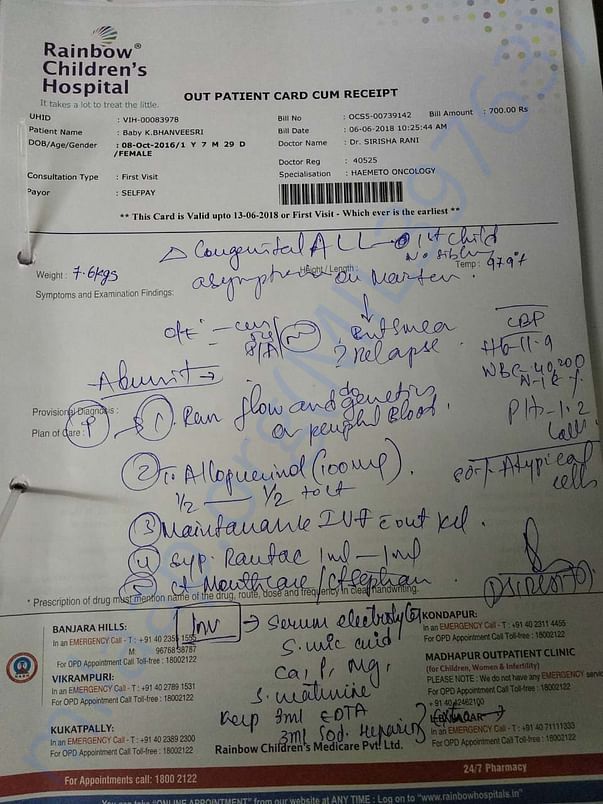 Rainbow®
Children's
Hospital
It takes a lot to treat the little.
OUT PATIENT CARD CUM RECEIPT
UHID : VIH-00083978
Bill No : OCS5-00739142 Bill Amount : 700.00 Rs
Patient Name : Baby K.BHANVEESRI
Bill Date : 06-06-2018 10:25:44 AM
DOB/Age/Gender : 08-Oct-2016/1 Y 7 M 29 D
/FEMALE
Doctor Name : Dr. SIRISHA RANI
Doctor Reg : 40525
Consultation Type : First Visit
Specialisation : HAEMETO ONCOLOGY
Payor : SELFPAY
** This Card is Valid upto 13-06-2018 or First Visit - Which ever is the earliest **
△ Congenital ALL 1st child
No sibling
Weight : 7.6kgs
Height / Length :
Temp : 97.9°f
asymptomatic on Mainten.
Symptoms and Examination Findings:
But smear
? relapse.
CBP
Hb-11.9
WBC-40,200
Admit →
Provisional Diagnosis :
Plan of Care :
① Rpt flow and do genetics
on peripheral Blood.
Plt-1.2
lakh
80% Atypical
cells
② T. Allopurinol (100mg).
1/2 — 1/2
③ Maintainable IVF
④ Syp. Rantac 1ml — 1ml
⑤ ct Mouthcare / ct Septran.
* Prescription of drug must mention name of the drug, route, dose and frequency in clear handwriting.
Inv → Serum electrolytes
S. uric acid
Ca, P, Mg,
Keep 3ml EDTA
3ml Sod. Heparin
extra
BANJARA HILLS:
In an EMERGENCY Call - T : +91 40 2355 1555
M: 96768 38787
For OPD Appointment Call Toll-free : 18002122
VIKRAMPURI:
In an EMERGENCY Call - T : +91 40 2789 1531
For OPD Appointment Call Toll-free : 18002122
KUKATPALLY:
In an EMERGENCY Call - T : +91 40 2389 2300
For OPD Appointment Call Toll-free : 18002122
KONDAPUR:
In an EMERGENCY Call - T : +91 40 2311 4455
For OPD Appointment Call Toll-free : 18002122
MADHAPUR OUTPATIENT CLINIC
(for Children, Women & Infertility)
PLEASE NOTE : We do not have any EMERGENCY service
For OPD Appointment Call Toll-free : 18002122
+ 91 40 42462100
In an EMERGENCY Call - T : +91 40 71111333
For OPD Appointment Call Toll-free : 18002122
Rainbow Children's Medicare Pvt. Ltd.
For Appointments call: 1800 2122
24/7 Pharmacy
You can take "ONLINE APPOINTMENT" from our website at ANY TIME : Log on to "www.rainbowhospitals.in"